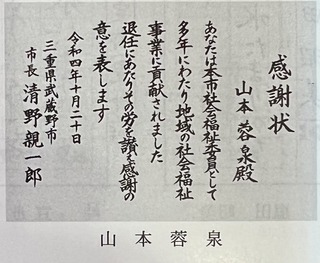 感謝状
山本蓉泉殿
あなたは本市社会福祉委員として
多年にわたり地域の社会福祉
事業に貢献されました
退任にあたりその労を讃え感謝の
意を表します
令和四年十月二十日
三重県武蔵野市
市長 清野親一郎
山本蓉泉